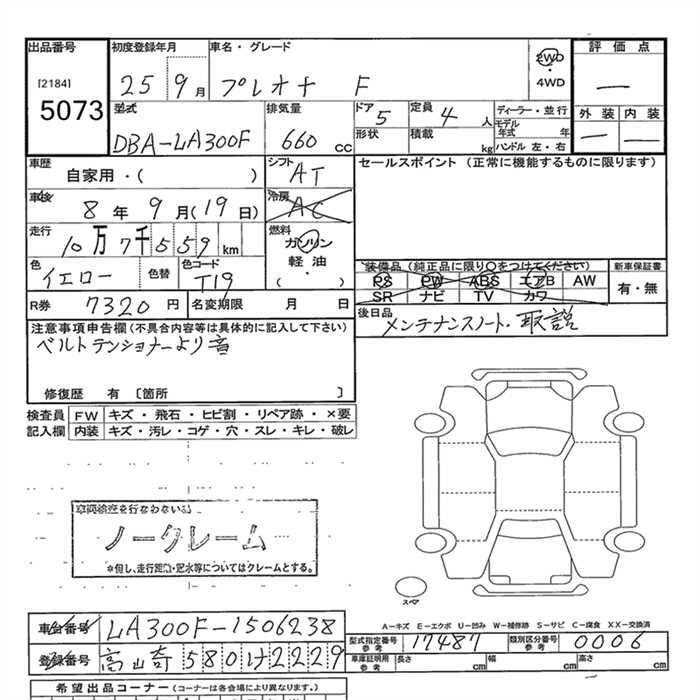 出品番号 初度登録年月 車名・グレード 2WD 評価点
[2184] 25 9月 プレオナ F ・4WD —
5073 型式 排気量 ドア 5 定員 4人 ディーラー・並行 外装 内装
DBA-LA300F 660 cc 形状 積載 kg モデル年式 年 — —
ハンドル 左・右
車歴 自家用・( ) シフト AT セールスポイント (正常に機能するものに限ります)
車検 8年 9月(19日) 冷房 AC
走行 10万7千559km 燃料 ガソリン
軽油・( )
色 イエロー 色替 色コード T19 装備品(純正品に限り○をつけてください) 新車保証書
PS PW ABS エアB AW 有・無
SR ナビ TV カワ
R券 7320円 名変期限 月 日 後日品
メンテナンスノート・取説
注意事項申告欄(不具合内容等は具体的に記入して下さい)
ベルトテンショナーより音
修復歴 有 〔箇所 〕
検査員 FW キズ・飛石・ヒビ割・リペア跡・×要
記入欄 内装 キズ・汚レ・コゲ・穴・スレ・キレ・破レ
車両検査を行なわない為
ノークレーム
*但し、走行距離・冠水等についてはクレームとする。
スペア
A-キズ E-エクボ U-凹み W-補修跡 S-サビ C-腐食 XX-交換済
車台番号 LA300F-1506238
型式指定番号 参考 17487 類別区分番号 参考 0006
登録番号 580け2229
車庫証明用 参考 長さ cm 幅 cm 高さ cm
希望出品コーナー(コーナーは各会場により異なります。)